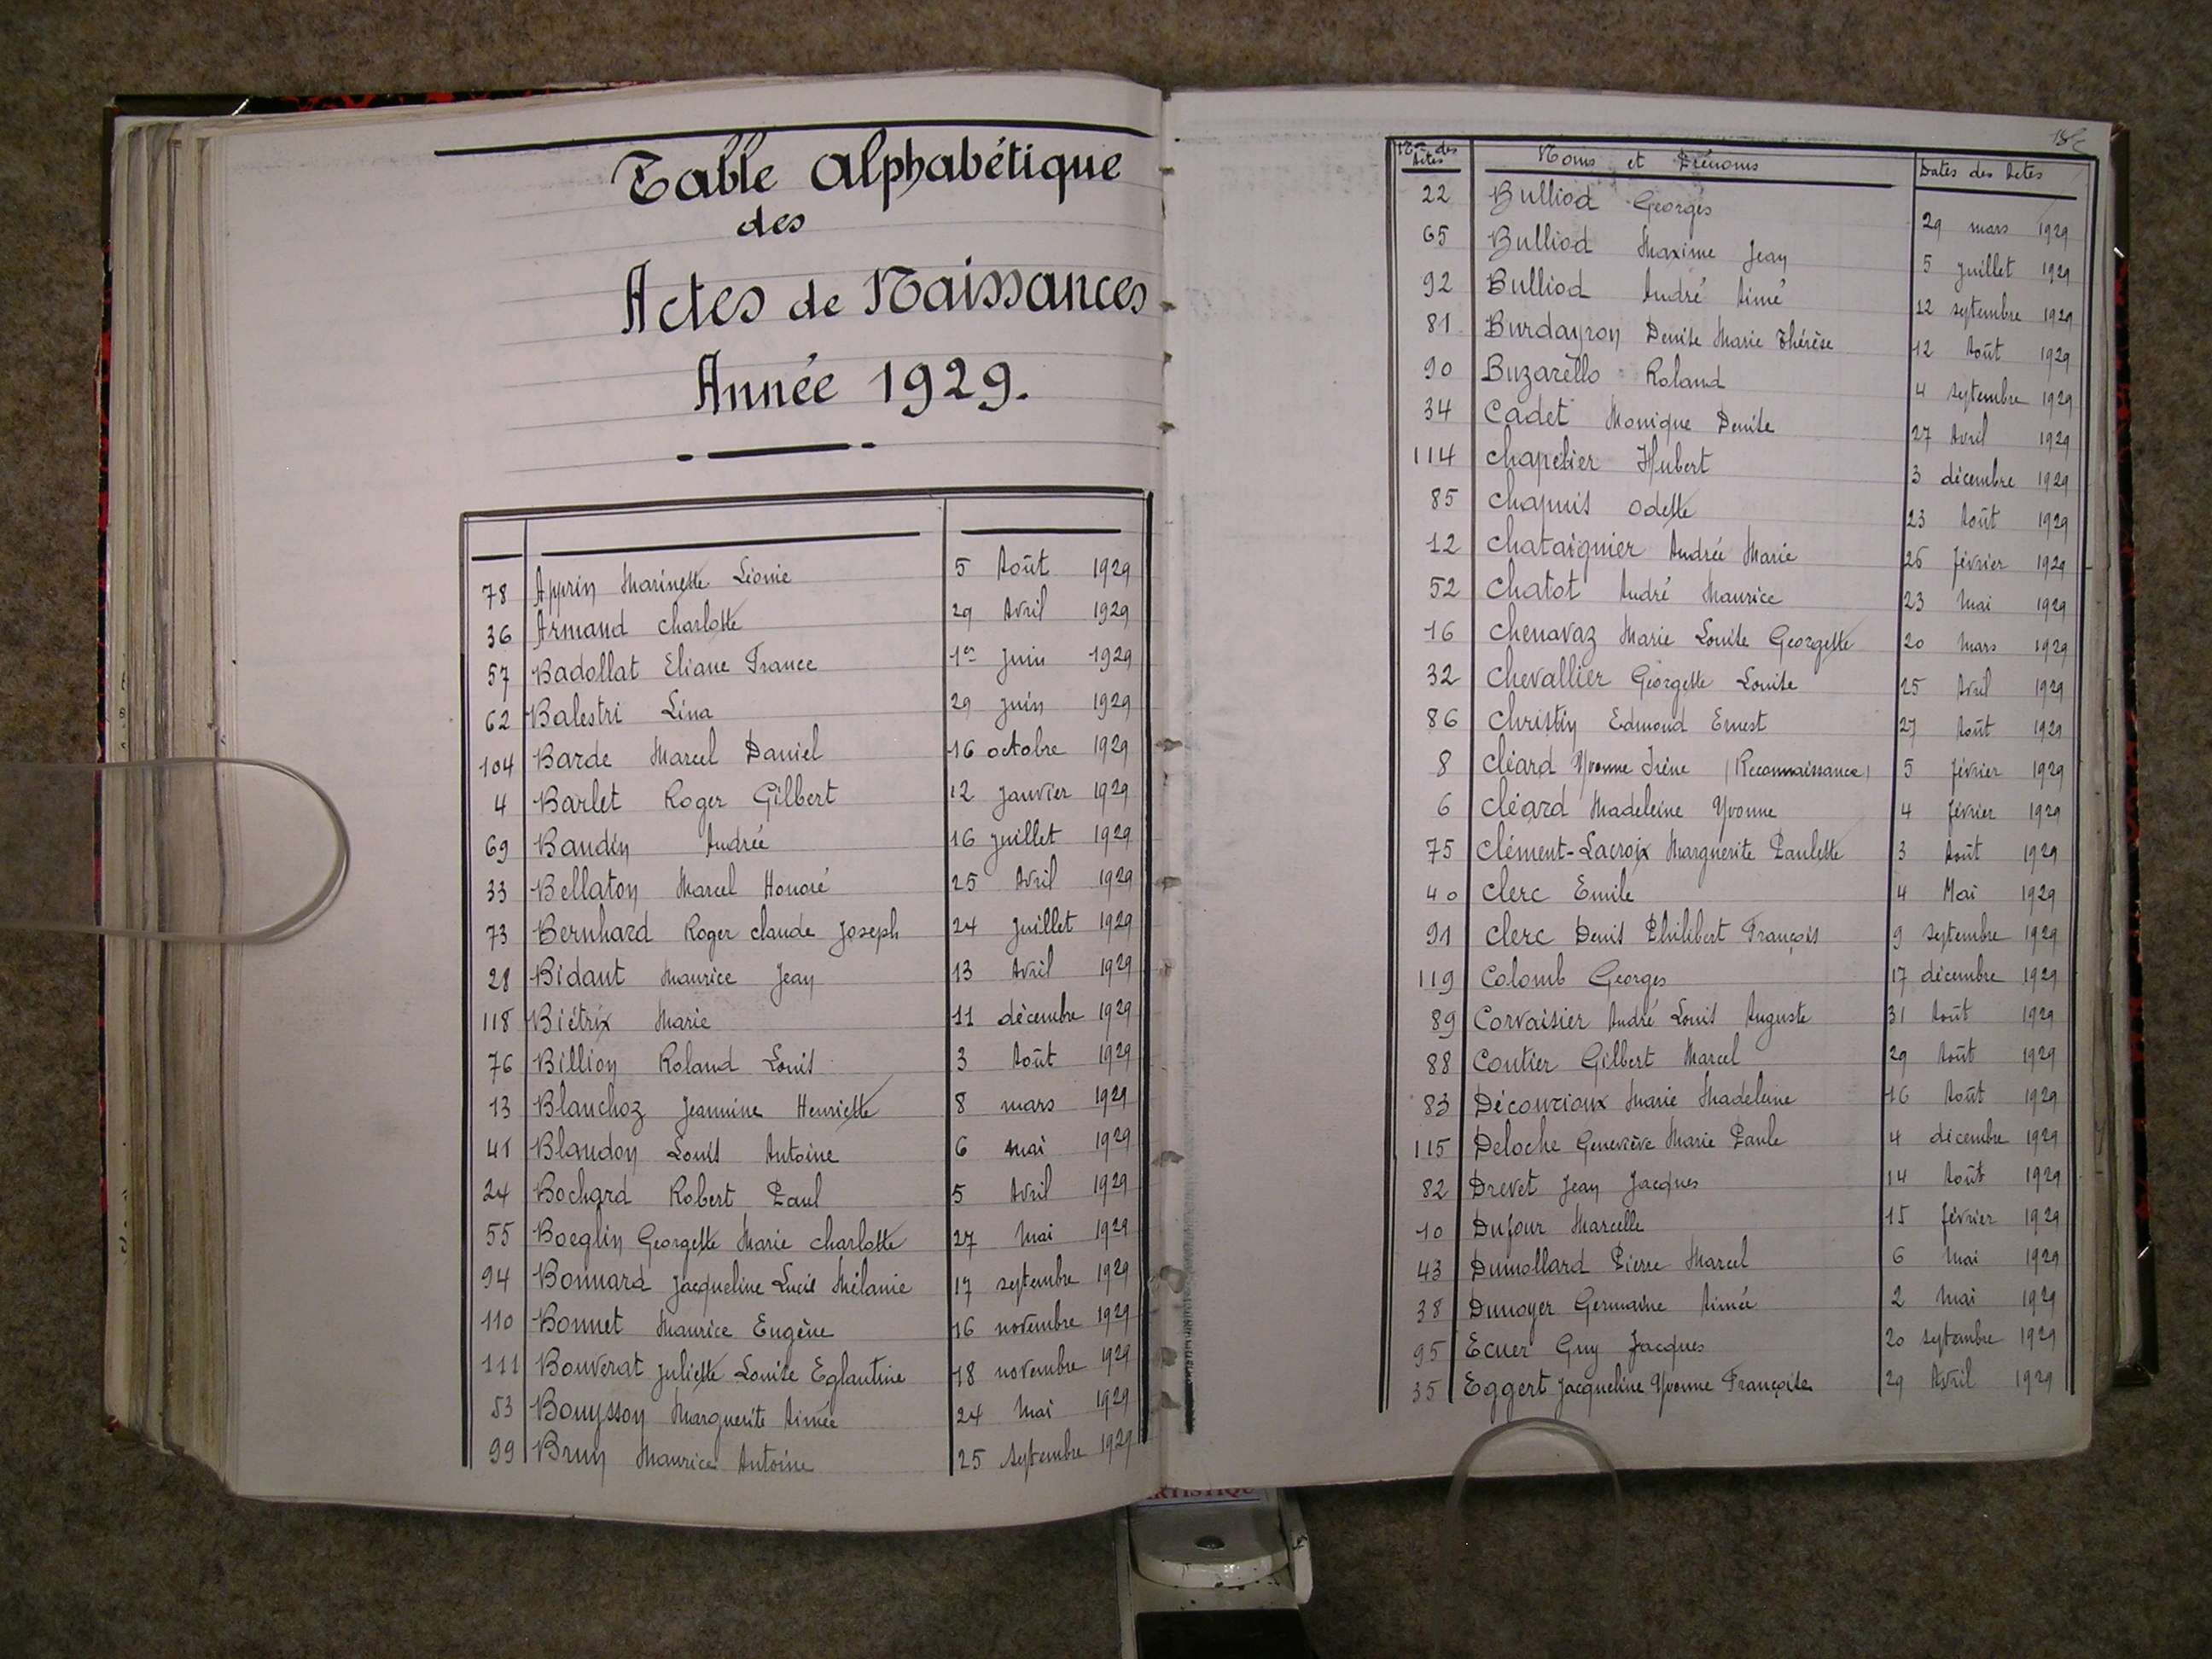 Table Alphabétique
des
Actes de Naissances
Année 1929.
78 Apprin Marinette Léonie 5 Août 1929
36 Armand Charlotte 29 Avril 1929
57 Badollat Eliane France 1er Juin 1929
62 Balestri Lina 29 Juin 1929
104 Barde Marcel Daniel 16 octobre 1929
4 Barlet Roger Gilbert 12 Janvier 1929
69 Baudin Andrée 16 Juillet 1929
33 Bellaton Marcel Honoré 25 Avril 1929
73 Bernhard Roger Claude Joseph 24 Juillet 1929
28 Bidaut Maurice Jean 13 Avril 1929
118 Biétrix Marie 11 décembre 1929
76 Billion Roland Louis 3 Août 1929
13 Blanchoz Jeannine Henriette 8 mars 1929
41 Blandon Louis Antoine 6 mai 1929
24 Bochard Robert Paul 5 Avril 1929
55 Boeglin Georgette Marie Charlotte 27 Mai 1929
94 Bonnard Jacqueline Lucie Mélanie 17 septembre 1929
110 Bonnet Maurice Eugène 16 novembre 1929
111 Bouverat Juliette Louise Eglantine 18 novembre 1929
53 Bouysson Marguerite Aimée 24 Mai 1929
99 Brun Maurice Antoine 25 Septembre 1929
Nos des Actes Noms et Prénoms Dates des Actes
22 Bulliod Georges 29 mars 1929
65 Bulliod Maxime Jean 5 Juillet 1929
92 Bulliod André Aimé 12 septembre 1929
81 Burdayron Denise Marie Thérèse 12 Août 1929
90 Buzarello Roland 4 septembre 1929
34 Cadet Monique Denise 27 Avril 1929
114 Chapelier Hubert 3 décembre 1929
85 Chapuis Odette 23 Août 1929
12 Chataignier Andrée Marie 26 février 1929
52 Chatot André Maurice 23 Mai 1929
16 Chenavaz Marie Louise Georgette 20 Mars 1929
32 Chevallier Georgette Louise 25 Avril 1929
86 Christin Edmond Ernest 27 Août 1929
8 Cléard Yvonne Irène (Reconnaissance) 5 février 1929
6 Cléard Madeleine Yvonne 4 février 1929
75 Clément-Lacroix Marguerite Paulette 3 Août 1929
40 Clerc Emile 4 Mai 1929
91 Clerc Denis Philibert François 9 Septembre 1929
119 Colomb Georges 17 décembre 1929
89 Corvaisier André Louis Auguste 31 Août 1929
88 Coutier Gilbert Marcel 29 Août 1929
83 Décourioux Marie Madeleine 16 Août 1929
115 Deloche Geneviève Marie Paule 4 décembre 1929
82 Drevet Jean Jacques 14 Août 1929
10 Dufour Marcelle 15 février 1929
43 Dumollard Pierre Marcel 6 Mai 1929
38 Dunoyer Germaine Aimée 2 Mai 1929
95 Ecuer Guy Jacques 20 septembre 1929
35 Eggert Jacqueline Yvonne Françoise 29 Avril 1929